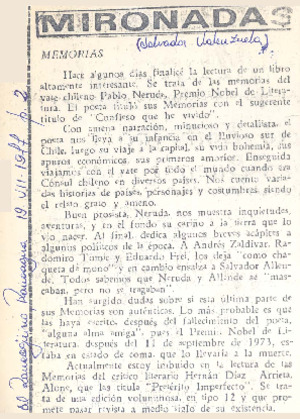 MIRONADAS
(Salvador Valenzuela)
MEMORIAS
Hace algunos días finalicé la lectura de un libro
altamente interesante. Se trata de las memorias del
vate chileno Pablo Neruda, Premio Nobel de Litera-
tura. El poeta tituló sus Memorias con el sugerente
título de "Confieso que he vivido".
Con amena narración, minucioso y detallista, el
poeta nos lleva a su infancia en el lluvioso sur de
Chile, luego su viaje a la capital, su vida bohemia, sus
apuros económicos, sus primeros amoríos. Enseguida
viajamos con el vate por todo el mundo cuando era
Cónsul chileno en diversos países. Nos cuenta varia-
das historias de países, personajes y costumbres siendo
el relato grato y ameno.
Buen prosista, Neruda, nos muestra inquietudes,
aventuras, y en el fondo su cariño a la tierra que lo
vio nacer. Al final, dedica algunos breves acápites a
algunos políticos de la época. A Andrés Zaldívar, Ra-
domiro Tomic y Eduardo Frei, los deja "como cha-
queta de mono" y en cambio ensalza a Salvador Allen-
de. Todos sabemos que Neruda y Allende se "mas-
caban, pero no se tragaban"
Han surgido dudas sobre si esta última parte de
sus Memorias son auténticas. Lo más probable es que
las haya escrito, después del fallecimiento del poeta,
"alguna alma amiga" pues el Premio Nobel de Li-
teratura, después del 11 de septiembre de 1973, es-
taba en estado de coma, que lo llevaría a la muerte.
Actualmente estoy imbuido en la lectura de las
Memorias del crítico literario Hernán Díaz Arrieta,
Alone, que las titula "Pretérito Imperfecto". Se tra-
ta de una edición voluminosa, en tipo 12 y que pro-
mete pasar revista a medio siglo de su existencia.
El Rancagüino Rancagua 19 VII 1977 p. 2